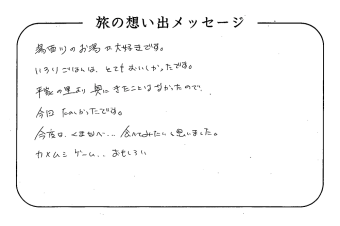 旅の想い出メッセージ
湯西川のお湯が大好きです。
いろりごはんは、とてもおいしかったです。
平家の里より奥にきたことはなかったので、
今回たのしかったです。
今度は、くまなべ… 食べてみたいと思いました。
カメムシゲーム.. おもしろい